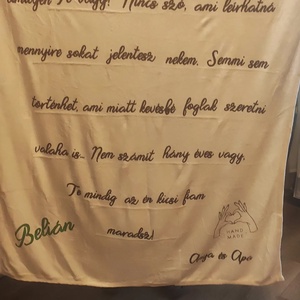 Te vagy! Nincs szó, ami leírhatná
mennyire sokat jelentesz nekem. Semmi sem
történhet, ami miatt kevésbé foglak szeretni
valaha is... Nem számít hány éves vagy.
Te mindig az én kicsi fiam
maradsz!
Belián
HAND
MADE
Anya és Apa